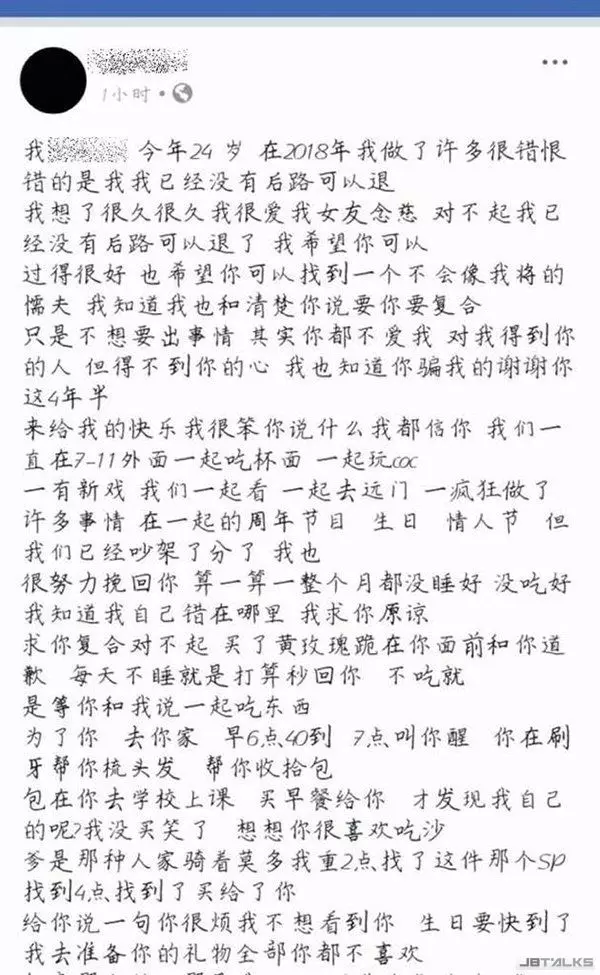 1小时
我 今年24 岁 在2018年我做了许多很错恨
错的是我我已经没有后路可以退
我想了很久很久我很爱我女友念慈 对不起我已
经没有后路可以退了 我希望你可以
过得很好 也希望你可以找到一个不会像我将的
懦夫 我知道我也和清楚你说要你要复合
只是不想要出事情 其实你都不爱我 对我得到你
的人 但得不到你的心 我也知道你骗我的谢谢你
这4年半
来给我的快乐我很笨你说什么我都信你 我们一
直在7-11外面一起吃杯面 一起玩coc
一有新戏 我们一起看 一起去远门 一疯狂做了
许多事情 在一起的周年节目 生日 情人节 但
我们已经吵架了分了 我也
很努力挽回你 算一算一整个月都没睡好 没吃好
我知道我自己错在哪里 我求你原谅
求你复合对不起 买了黄玫瑰跪在你面前和你道
歉 每天不睡就是打算秒回你 不吃就
是等你和我说一起吃东西
为了你 去你家 早6点40到 7点叫你醒 你在刷
牙帮你梳头发 帮你收拾包
包在你去学校上课 买早餐给你 才发现我自己
的呢?我没买笑了 想想你很喜欢吃沙
爹是那种人家骑着莫多我重2点找了这件那个SP
找到4点找到了买给了你
给你说一句你很烦我不想看到你 生日要快到了
我去准备你的礼物全部你都不喜欢
JBTALKS